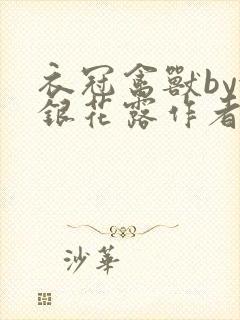 衣冠禽獸by
銀花露作者
沙華